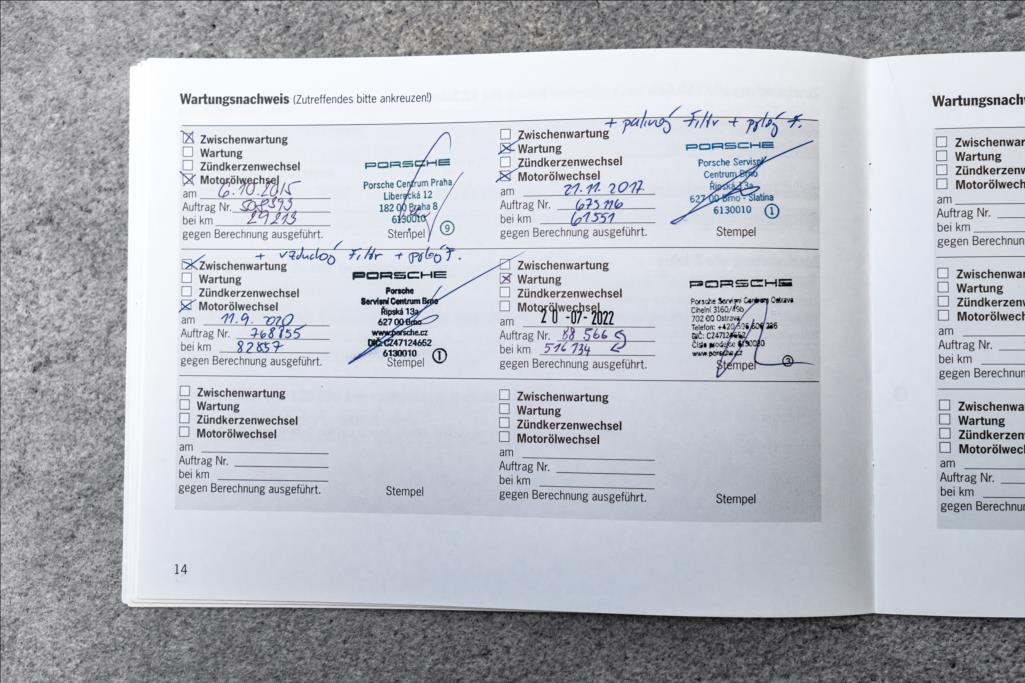 Wartungsnachweis (Zutreffendes bitte ankreuzen!)
Zwischenwartung
Wartung
Zündkerzenwechsel
Motorölwechsel
am 6.10.2015
Auftrag Nr.
bei km 29213
gegen Berechnung ausgeführt.
PORSCHE
Porsche Centrum Praha
Liberecká 12
182 00 Praha 8
6130010
9
Stempel
+ Filtr +
Zwischenwartung
Wartung
Zündkerzenwechsel
Motorölwechsel
am 21.11.2017
Auftrag Nr. 673116
bei km 61551
gegen Berechnung ausgeführt.
PORSCHE
Porsche Servisní
Centrum Brno
Řipská 13a
627 00 Brno - Slatina
6130010
1
Stempel
+ Filtr +
Zwischenwartung
Wartung
Zündkerzenwechsel
Motorölwechsel
am 11.9.
Auftrag Nr. 768755
bei km 82857
gegen Berechnung ausgeführt.
PORSCHE
Porsche
Servisní Centrum Brno
Řipská 13a
627 00 Brno
www.porsche.cz
DIČ: CZ47124652
6130010
1
Stempel
Zwischenwartung
Wartung
Zündkerzenwechsel
Motorölwechsel
am 20 -07- 2022
Auftrag Nr. 88 566
bei km 516734
gegen Berechnung ausgeführt.
PORSCHE
Porsche Servisní Centrum Ostrava
Cihelní 3160/49b
702 00 Ostrava
Telefon: +420
DIČ: CZ47124652
Číslo prodejce 6130030
www.porsche.cz
3
Stempel
Zwischenwartung
Wartung
Zündkerzenwechsel
Motorölwechsel
am
Auftrag Nr.
bei km
gegen Berechnung ausgeführt.
Stempel
Zwischenwartung
Wartung
Zündkerzenwechsel
Motorölwechsel
am
Auftrag Nr.
bei km
gegen Berechnung ausgeführt.
Stempel
14
Wartungsnachw
Zwischenwa
Wartung
Zündkerzen
Motorölwec
am
Auftrag Nr.
bei km
gegen Berechnun
Zwischenwa
Wartung
Zündkerzen
Motorölwec
am
Auftrag Nr.
bei km
gegen Berechnun
Zwischenwa
Wartung
Zündkerzen
Motorölwec
am
Auftrag Nr.
bei km
gegen Berechnun